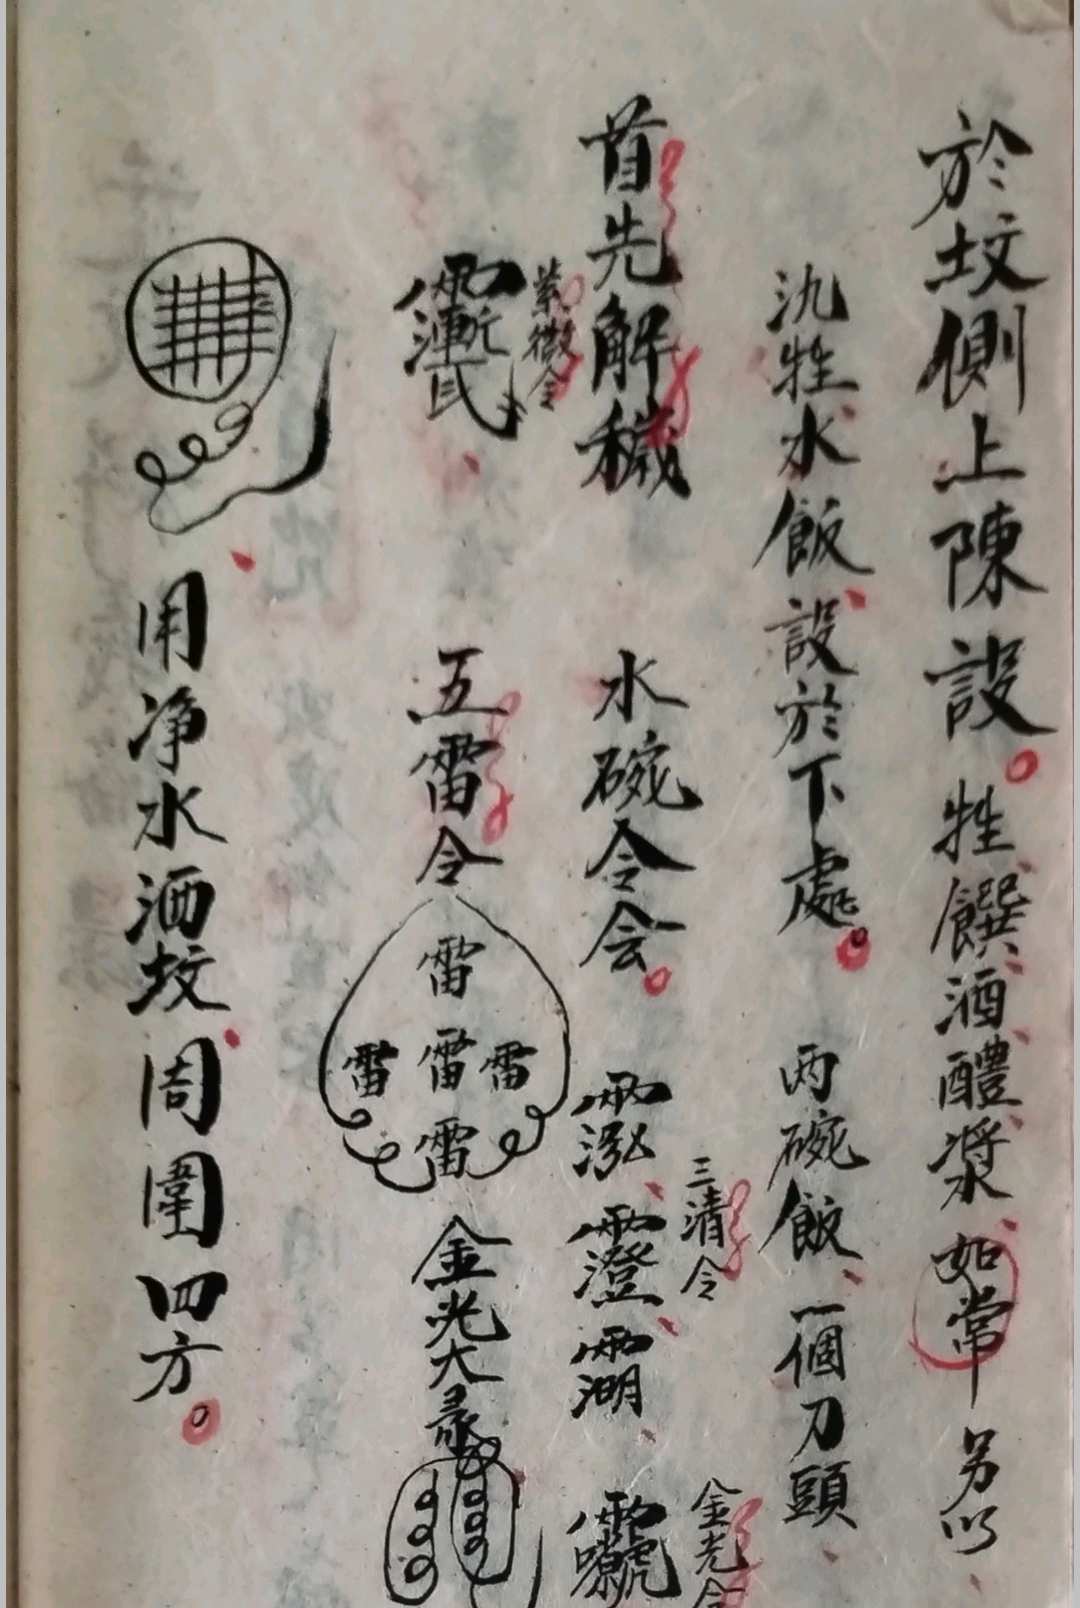 於坟側上陳設。牲饌酒醴漿如常另以
氿牲水飯設於下處。两碗飯、一個刀頭、
首先解穢 水碗令会。
三清令
金光令
紫微令
五雷令 雷雷雷雷雷 金光大
用净水洒坟周圍四方。